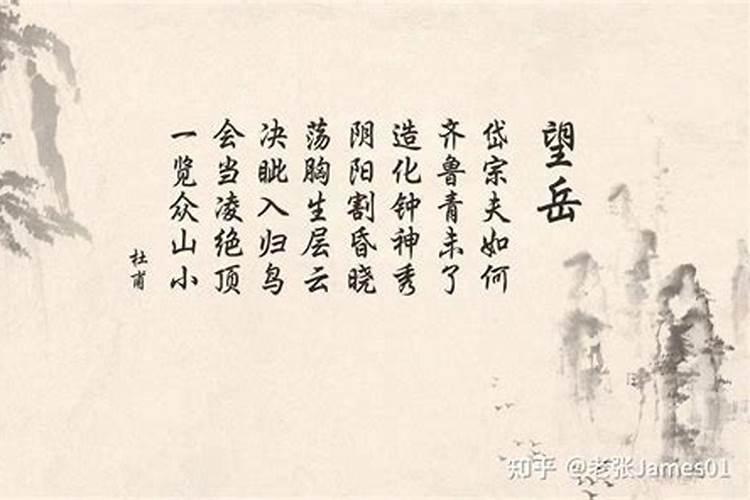 望岳
岱宗夫如何
齐鲁青未了
造化钟神秀
阴阳割昏晓
荡胸生层云
决眦入归鸟
会当凌绝顶
一览众山小
杜甫
知乎 @老张James01